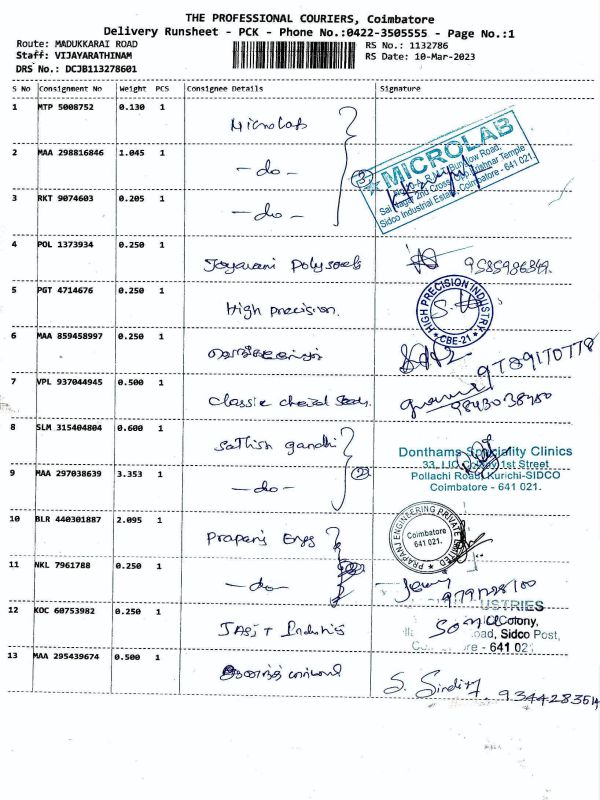 THE PROFESSIONAL COURIERS, Coimbatore
Delivery Runsheet - PCK - Phone No.:0422-3505555 - Page No.:1
Route: MADUKKARAI ROAD
RS No.: 1132786
Staff: VIJAYARATHINAM
RS Date: 10-Mar-2023
DRS No.: DCJB113278601
S No Consignment No Weight PCS Consignee Details Signature
1 MTP 5008752 0.130 1 Microlab
2 MAA 298816846 1.045 1 -do-
3 RKT 9074603 0.205 1 -do-
③ MICROLAB
Sidco Industrial Estate, Coimbatore - 641 021.
4 POL 1373934 0.250 1
5 PGT 4714676 0.250 1 High precision.
HIGH PRECISION INDUSTRY
CBE-21
6 MAA 859458997 0.250 1 9789170778
7 VPL 937044945 0.500 1 classic
8 SLM 315404804 0.600 1 sathish gandhi
9 MAA 297038639 3.353 1 -do-
Donthams Speciality Clinics
1st Street
Pollachi Road, Kurichi-SIDCO
Coimbatore - 641 021.
10 BLR 440301887 2.095 1 Prapanj Engg
PRAPANJ ENGINEERING PRIVATE LIMITED
Coimbatore
641 021.
11 NKL 7961788 0.250 1 -do-
12 KOC 60753982 0.250 1
USTRIES
Colony,
oad, Sidco Post,
re - 641 02
13 MAA 295439674 0.500 1